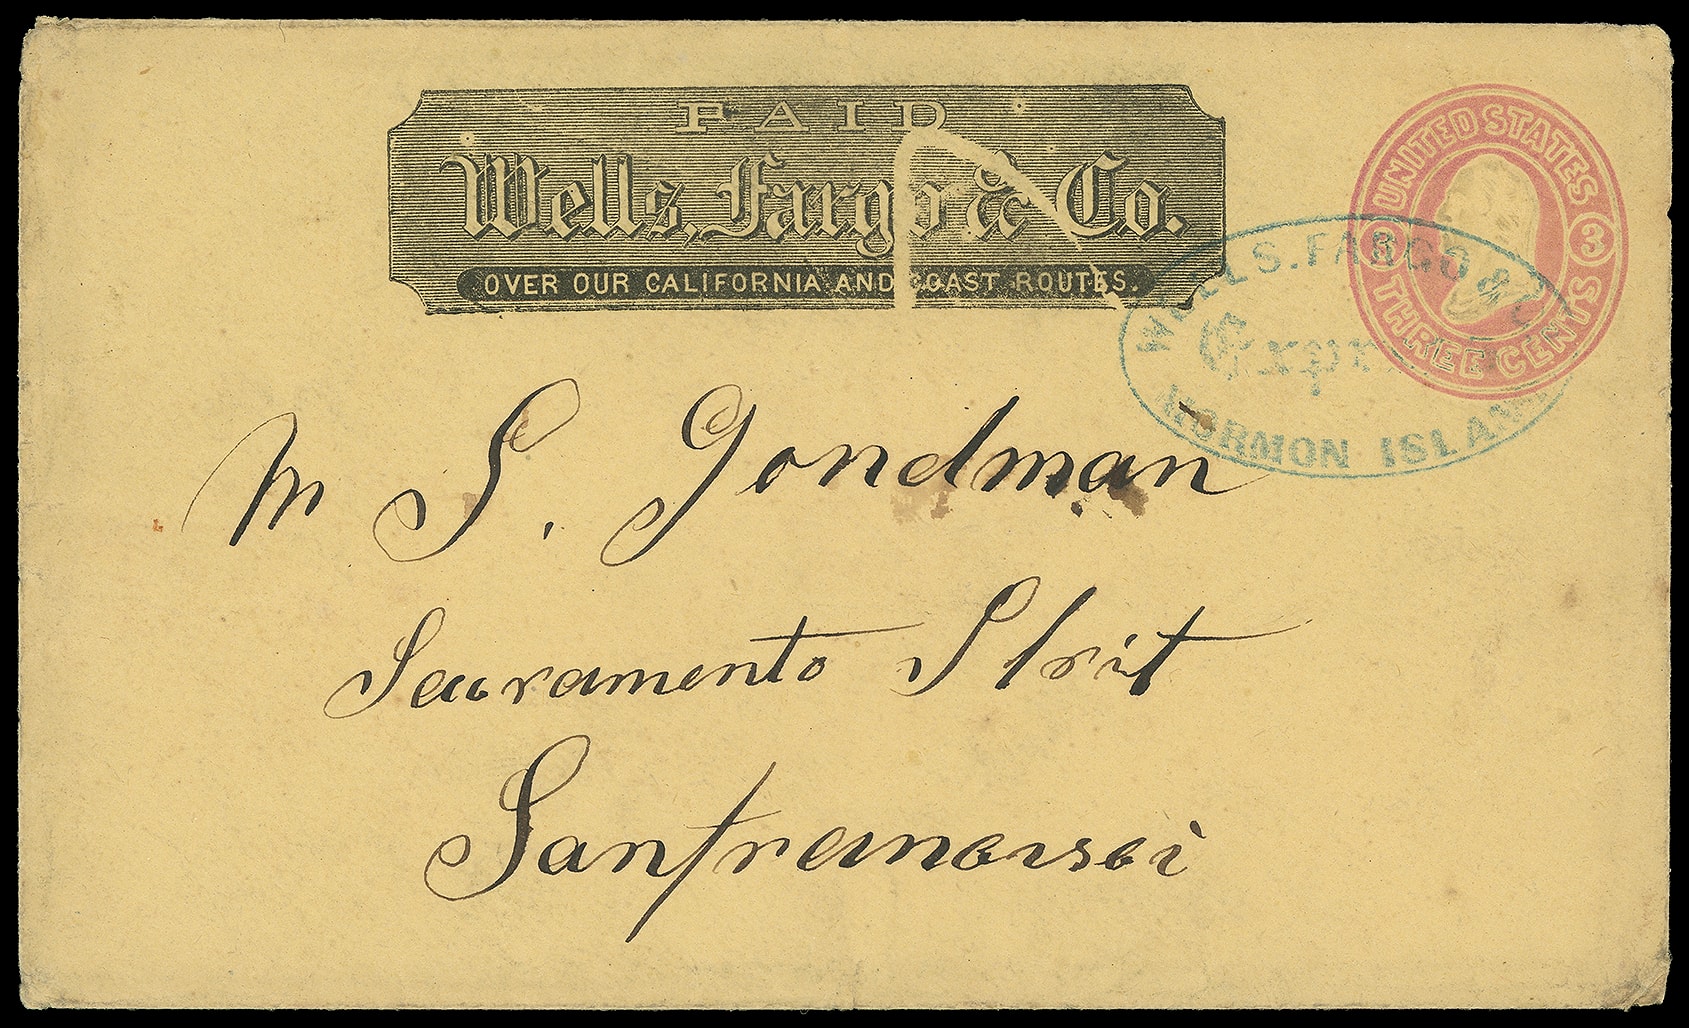 PAID
Wells, Fargo & Co.
OVER OUR CALIFORNIA AND COAST ROUTES.
UNITED STATES
3 3
THREE CENTS
WELLS. FARGO & C
Expr
MORMON ISLAND
M S. Gondman
Sacramento Strit
Sanfrancisci